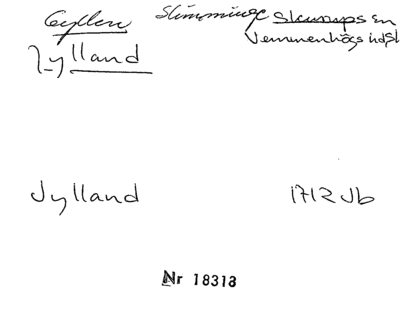 Gyllen Slimminge Skurups sn
Jylland Vemmenhögs hdsl
Jylland 1712 Jb
Nr 18318